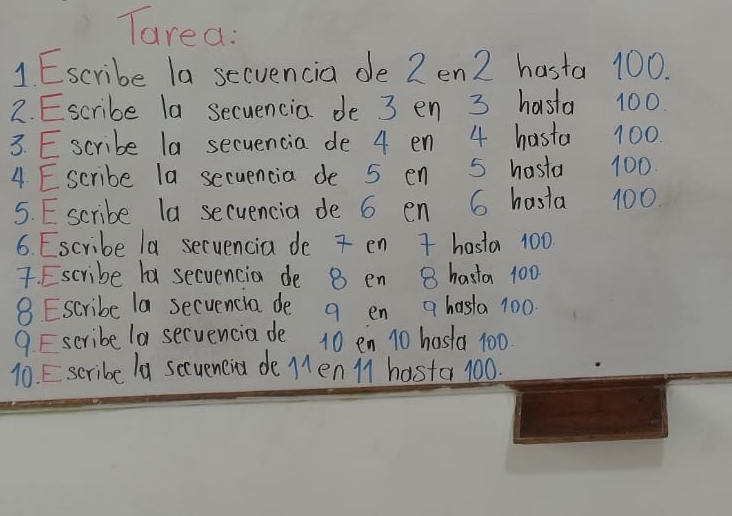 Tarea:
1. Escribe la secuencia de 2 en 2 hasta 100.
2. Escribe la secuencia de 3 en 3 hasta 100.
3. Escribe la secuencia de 4 en 4 hasta 100.
4. Escribe la secuencia de 5 en 5 hasta 100.
5. Escribe la secuencia de 6 en 6 hasta 100.
6. Escribe la secuencia de 7 en 7 hasta 100.
7. Escribe la secuencia de 8 en 8 hasta 100
8 Escribe la secuencia de 9 en 9 hasta 100.
9. Escribe la secuencia de 10 en 10 hasta 100.
10. Escribe la secuencia de 11 en 11 hasta 100.